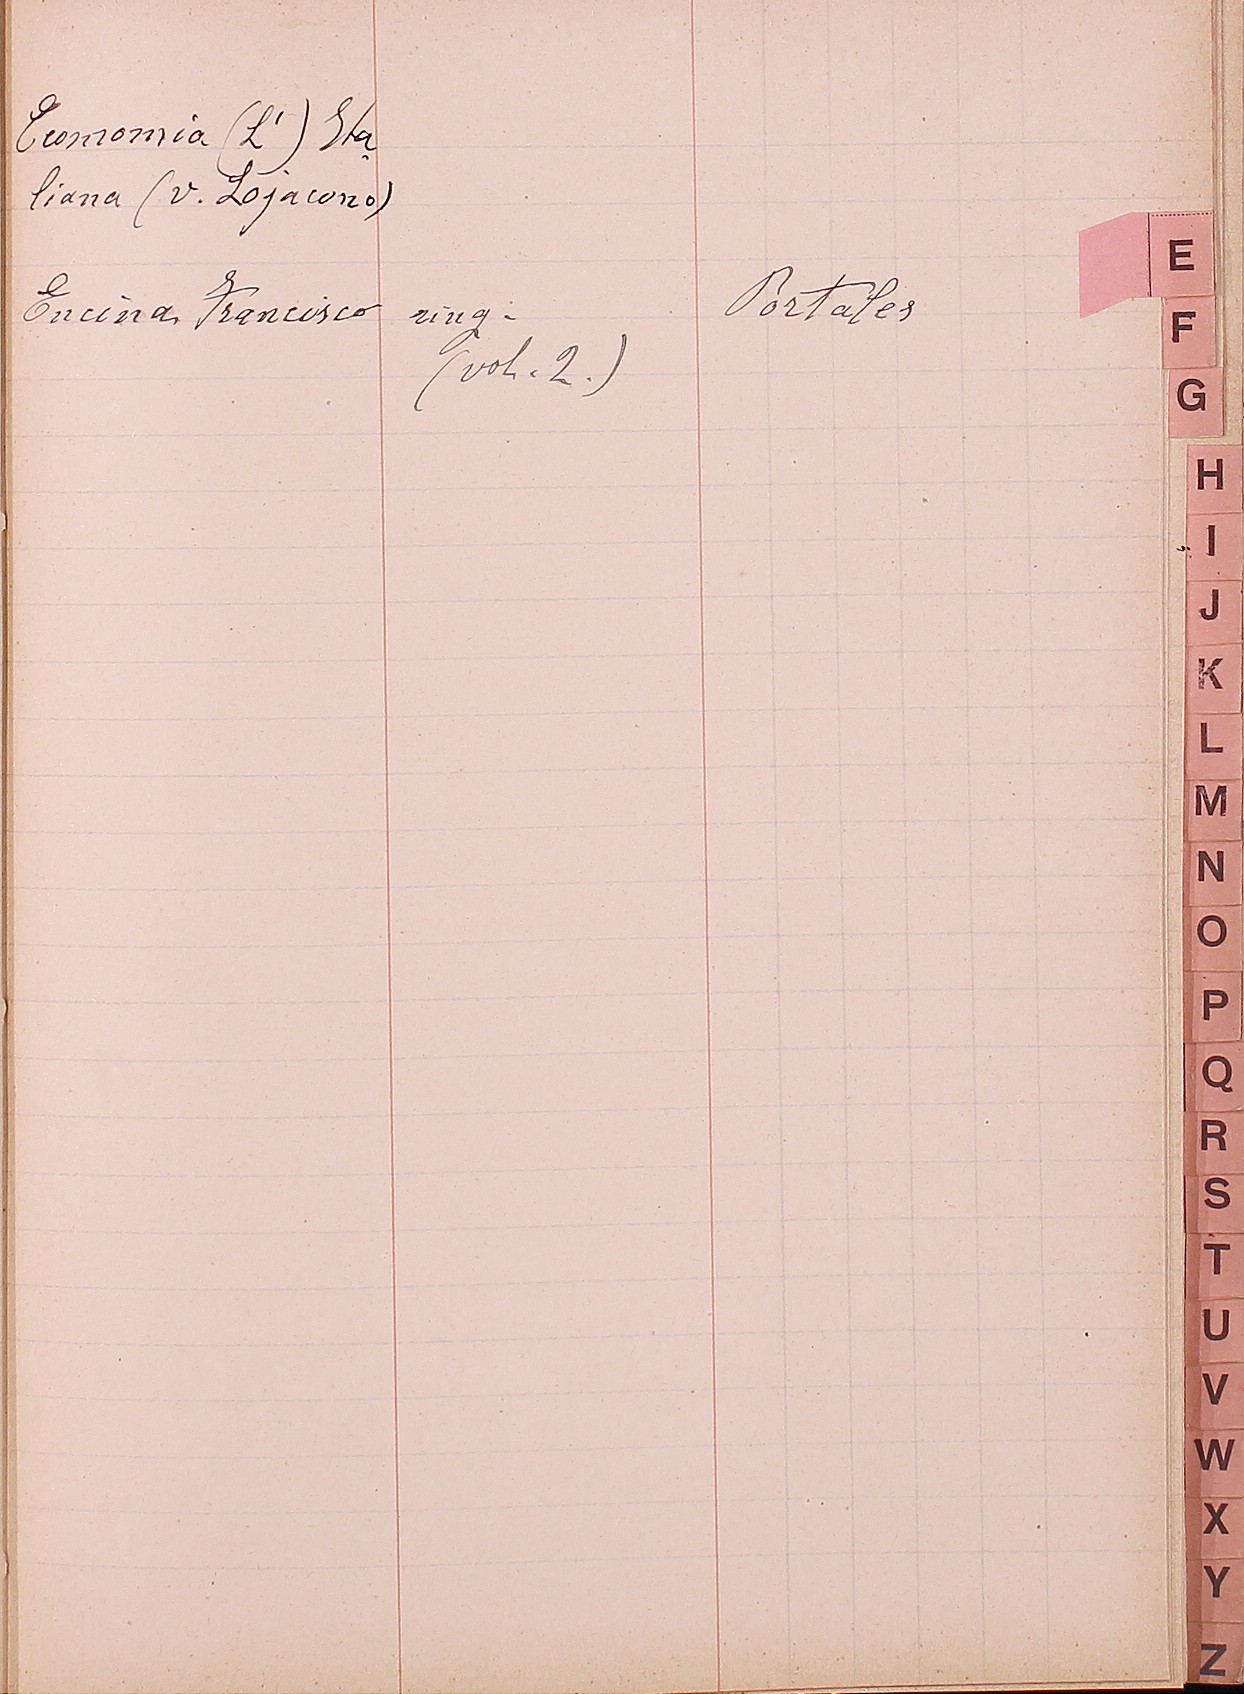 Economia (L') Ita
liana (v. Lojacono)
Encina Francisco ring. Portales
(vol. 2.)
E
F
G
H
I
J
K
L
M
N
O
P
Q
R
S
T
U
V
W
X
Y
Z